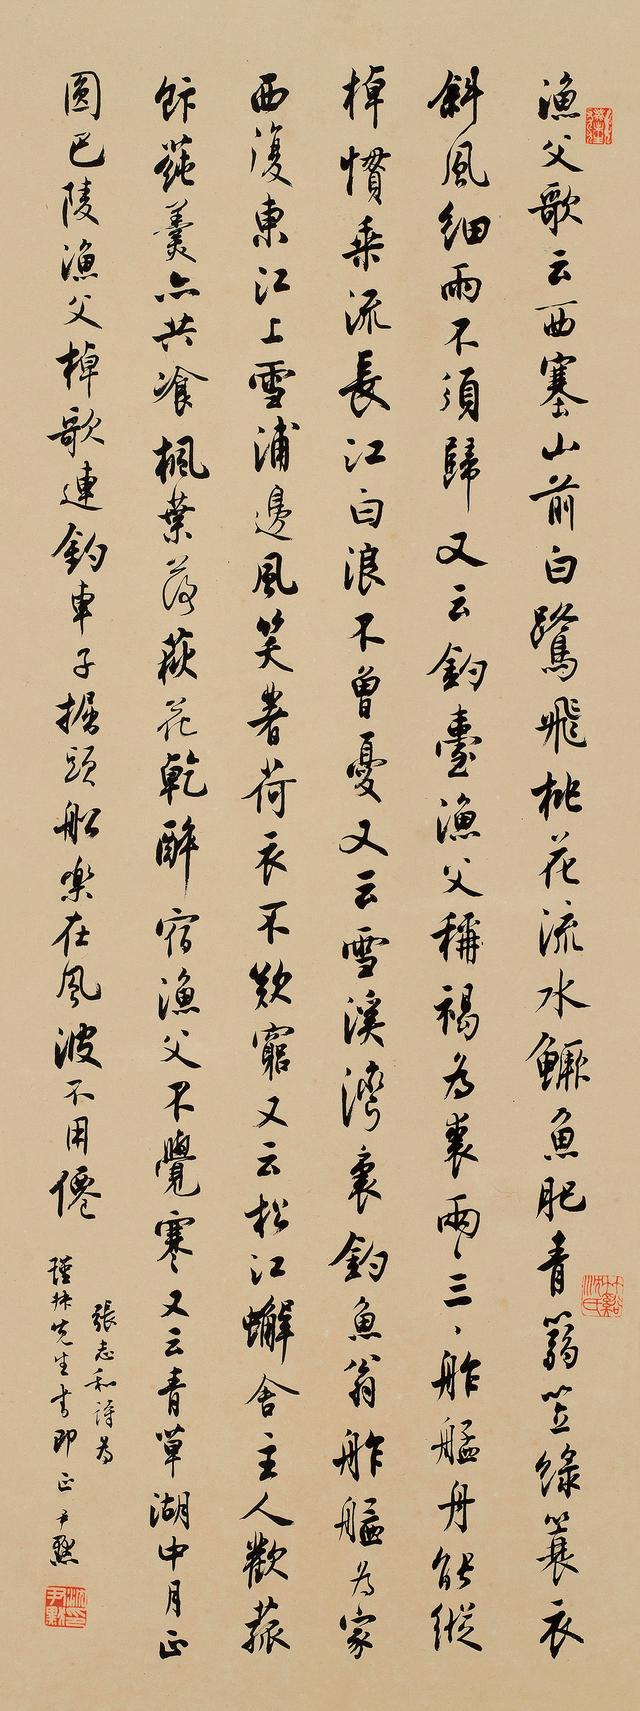 漁父歌云西塞山前白鷺飛桃花流水鱖魚肥青篛笠綠蓑衣
斜風細雨不須歸又云釣臺漁父稱褐為裘兩、三、舴艋舟能縱
棹慣乘流長江白浪不曾憂又云雪溪灣裏釣魚翁舴艋為家
西復東江上雪浦邊風笑著荷衣不歎窮又云松江蠏舍主人歡菰
飰蓴羹亦共飡楓葉落荻花乾醉宿漁父不覺寒又云青草湖中月正
圓巴陵漁父棹歌連釣車子掘頭船樂在風波不用僊
張志和詩為
瑾叔先生書即正 尹默
沈尹默印
竹谿沈氏